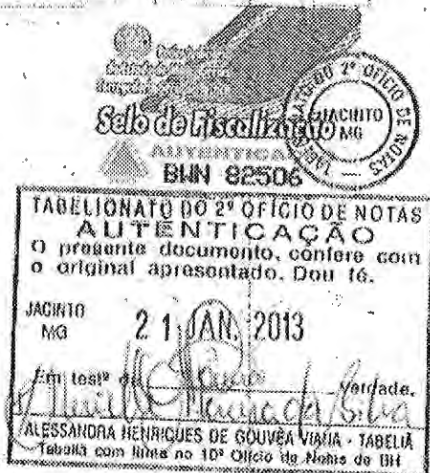 Selo de Fiscalização
AUTENTICA
BHN 82506
2º OFÍCIO DE NOTAS
JACINTO
MG
TABELIONATO DO 2º OFÍCIO DE NOTAS
AUTENTICAÇÃO
O presente documento, confere com
o original apresentado. Dou fé.
JACINTO
MG
21 JAN. 2013
Em testº da verdade.
ALESSANDRA HENRIQUES DE GOUVÊA VIANA - TABELIÃ
Tabeliã com firma no 10º Ofício de Notas de BH